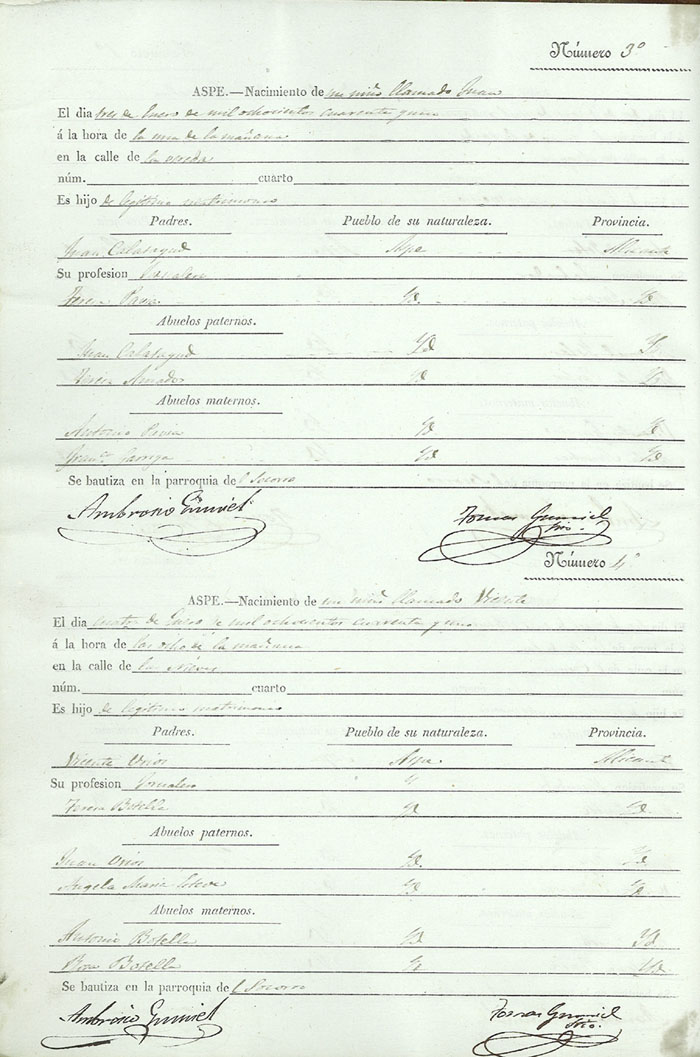 Número 3º
ASPE.—Nacimiento de un niño llamado Juan
El dia tres de Enero de mil ochocientos cuarenta y uno
á la hora de la una de la mañana
en la calle de la
núm. cuarto
Es hijo de legitimo matrimonio
Padres. Pueblo de su naturaleza. Provincia.
Juan Calatayud Aspe Alicante
Su profesion Jornalero
Teresa Pavia Id. Id
Abuelos paternos.
Juan Calatayud Id Id
Teresa Amador Id Id
Abuelos maternos.
Antonio Pavia Id Id
Id Id
Se bautiza en la parroquia del Socorro
Ambrosio Gumiel Tomas Gumiel
Srio.
Número 4º
ASPE.—Nacimiento de un niño llamado Vicente
El dia cuatro de Enero de mil ochocientos cuarenta y uno
á la hora de las ocho de la mañana
en la calle de las Nieves
núm. cuarto
Es hijo de legitimo matrimonio
Padres. Pueblo de su naturaleza. Provincia.
Vicente Urios Aspe Alicante
Su profesion Jornalero
Teresa Botella Id Id
Abuelos paternos.
Juan Urios Id. Id
Angela Maria Id Id
Abuelos maternos.
Antonio Botella Id Id
Rosa Botella Id Id
Se bautiza en la parroquia del Socorro
Ambrosio Gumiel Tomas Gumiel
Srio.